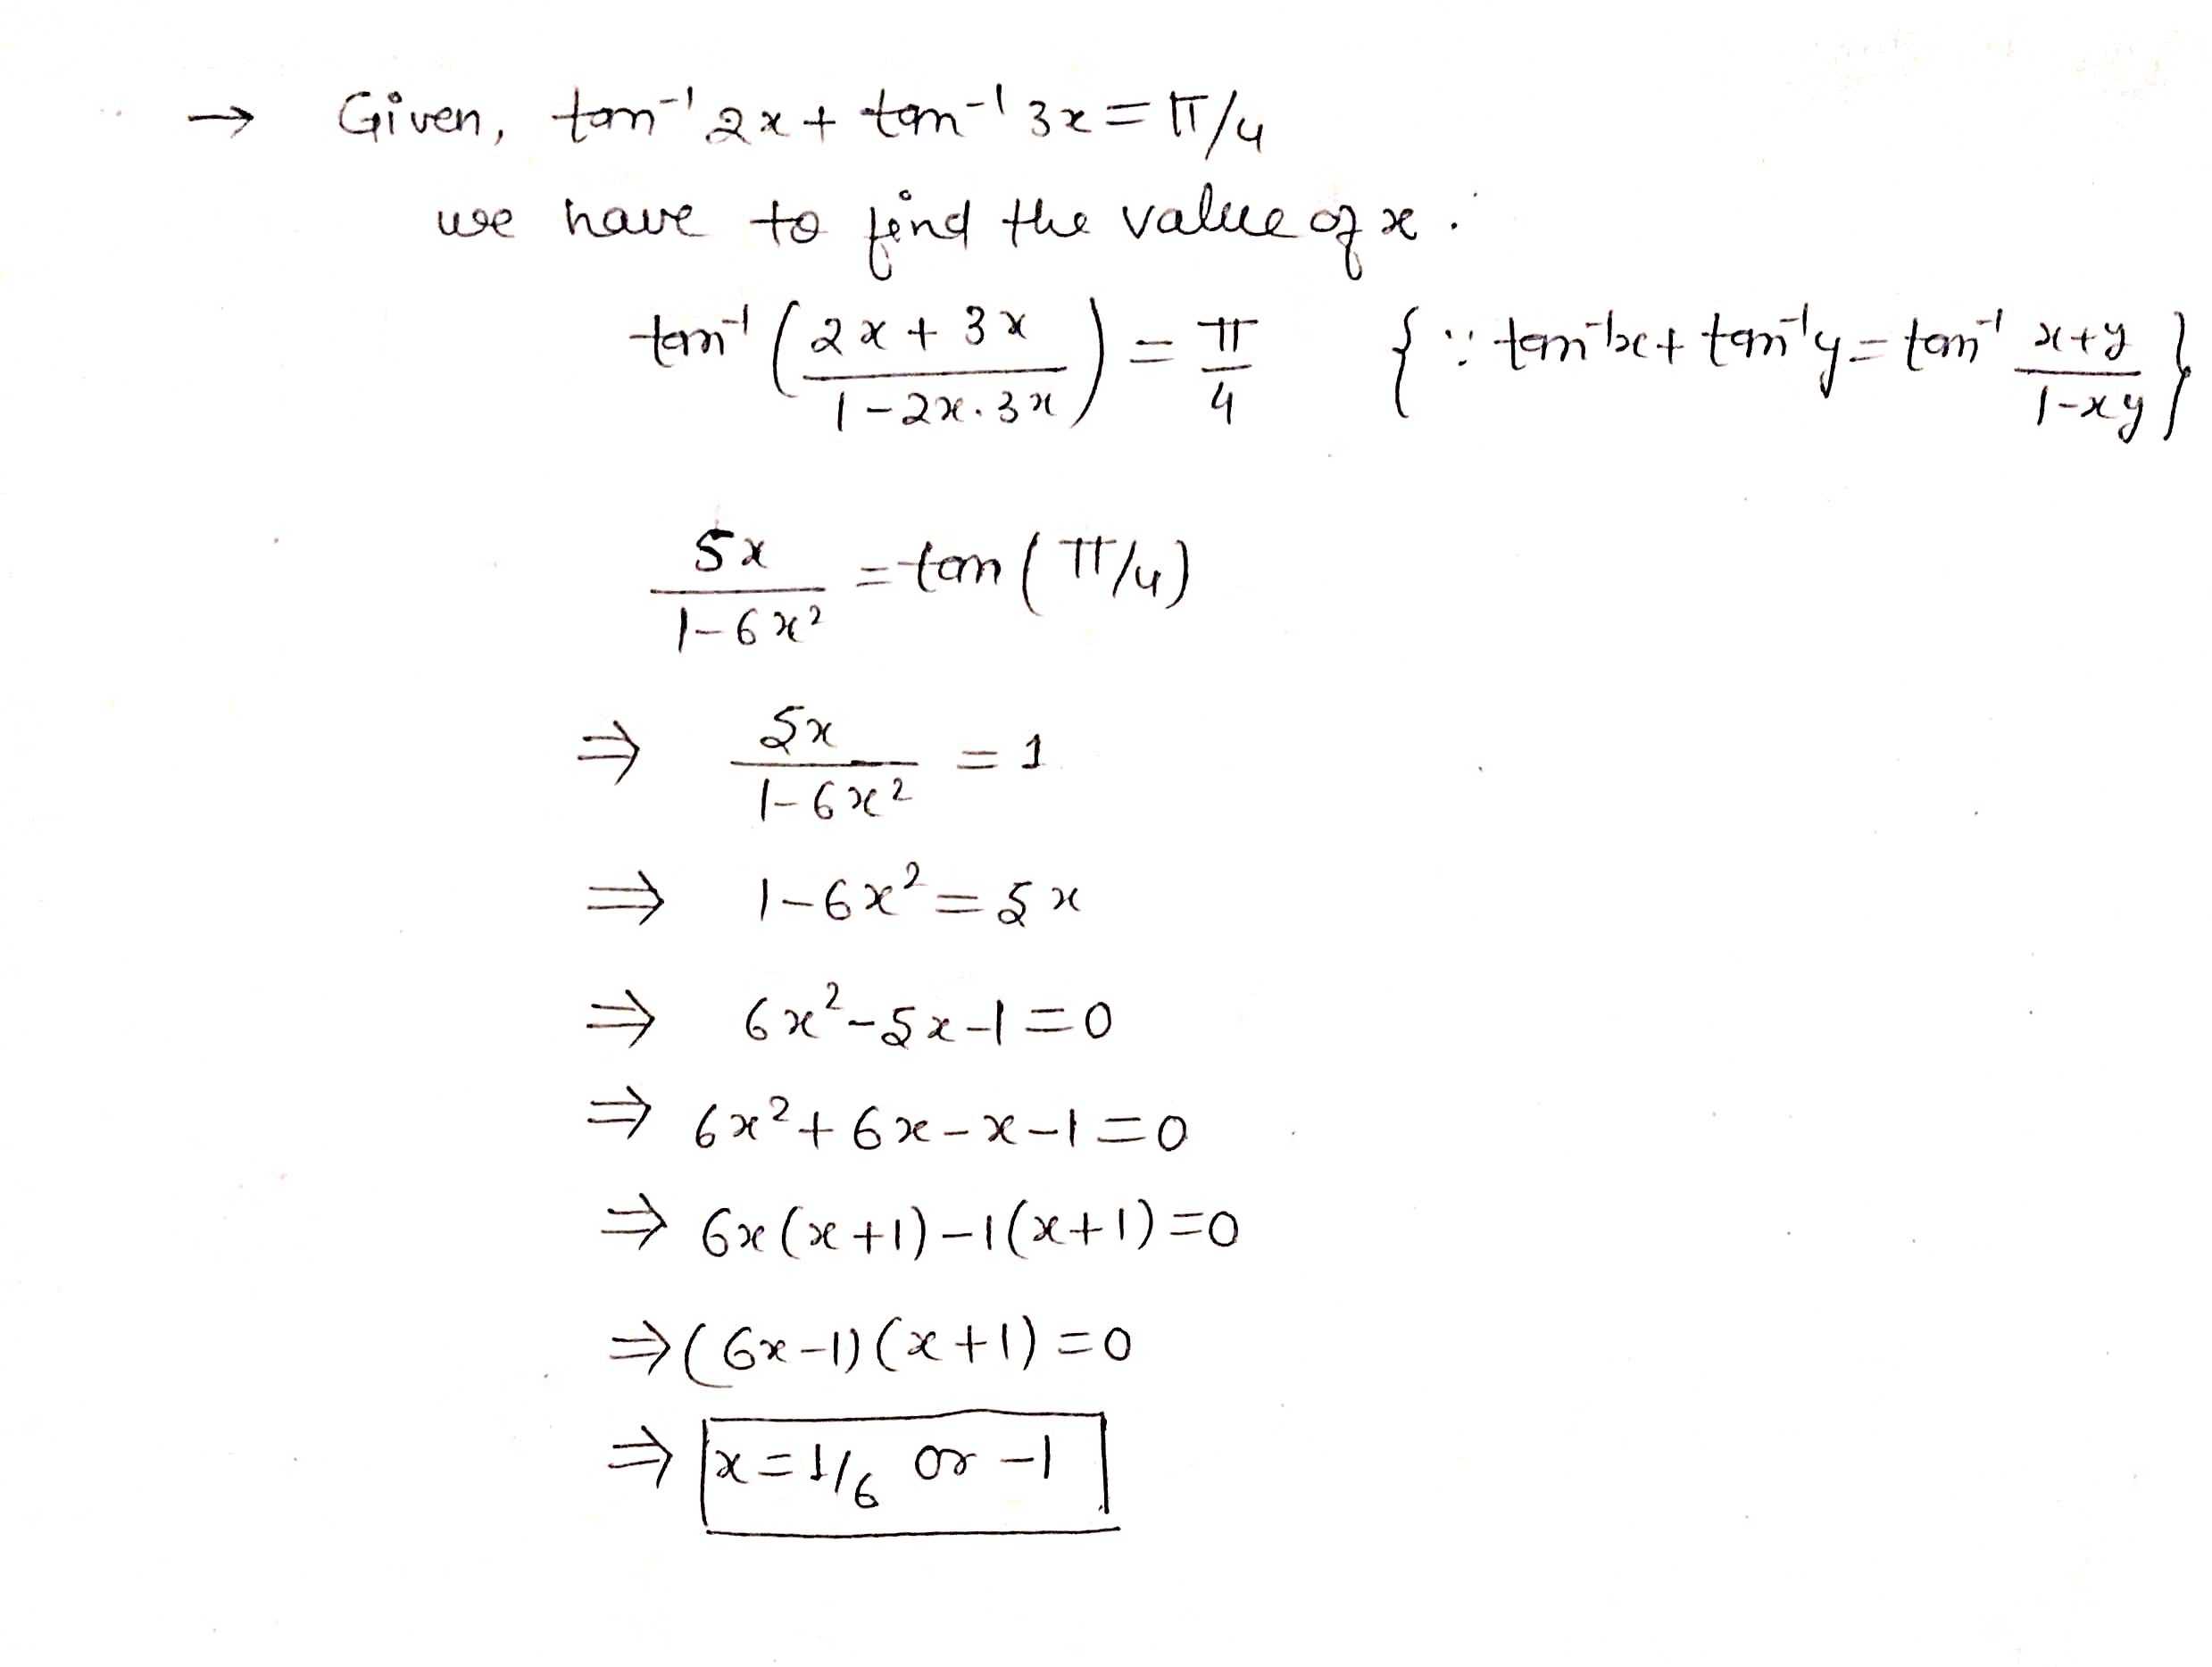 → Given, tan⁻¹ 2x + tan⁻¹ 3x = π/4
we have to find the value of x.
tan⁻¹ ( (2x + 3x) / (1 - 2x . 3x) ) = π/4 { ∵ tan⁻¹x + tan⁻¹y = tan⁻¹ (x+y)/(1-xy) }
5x / (1 - 6x²) = tan ( π/4 )
⇒ 5x / (1 - 6x²) = 1
⇒ 1 - 6x² = 5x
⇒ 6x² - 5x - 1 = 0
⇒ 6x² + 6x - x - 1 = 0
⇒ 6x (x + 1) - 1 (x + 1) = 0
⇒ (6x - 1) (x + 1) = 0
⇒ x = 1/6 or -1